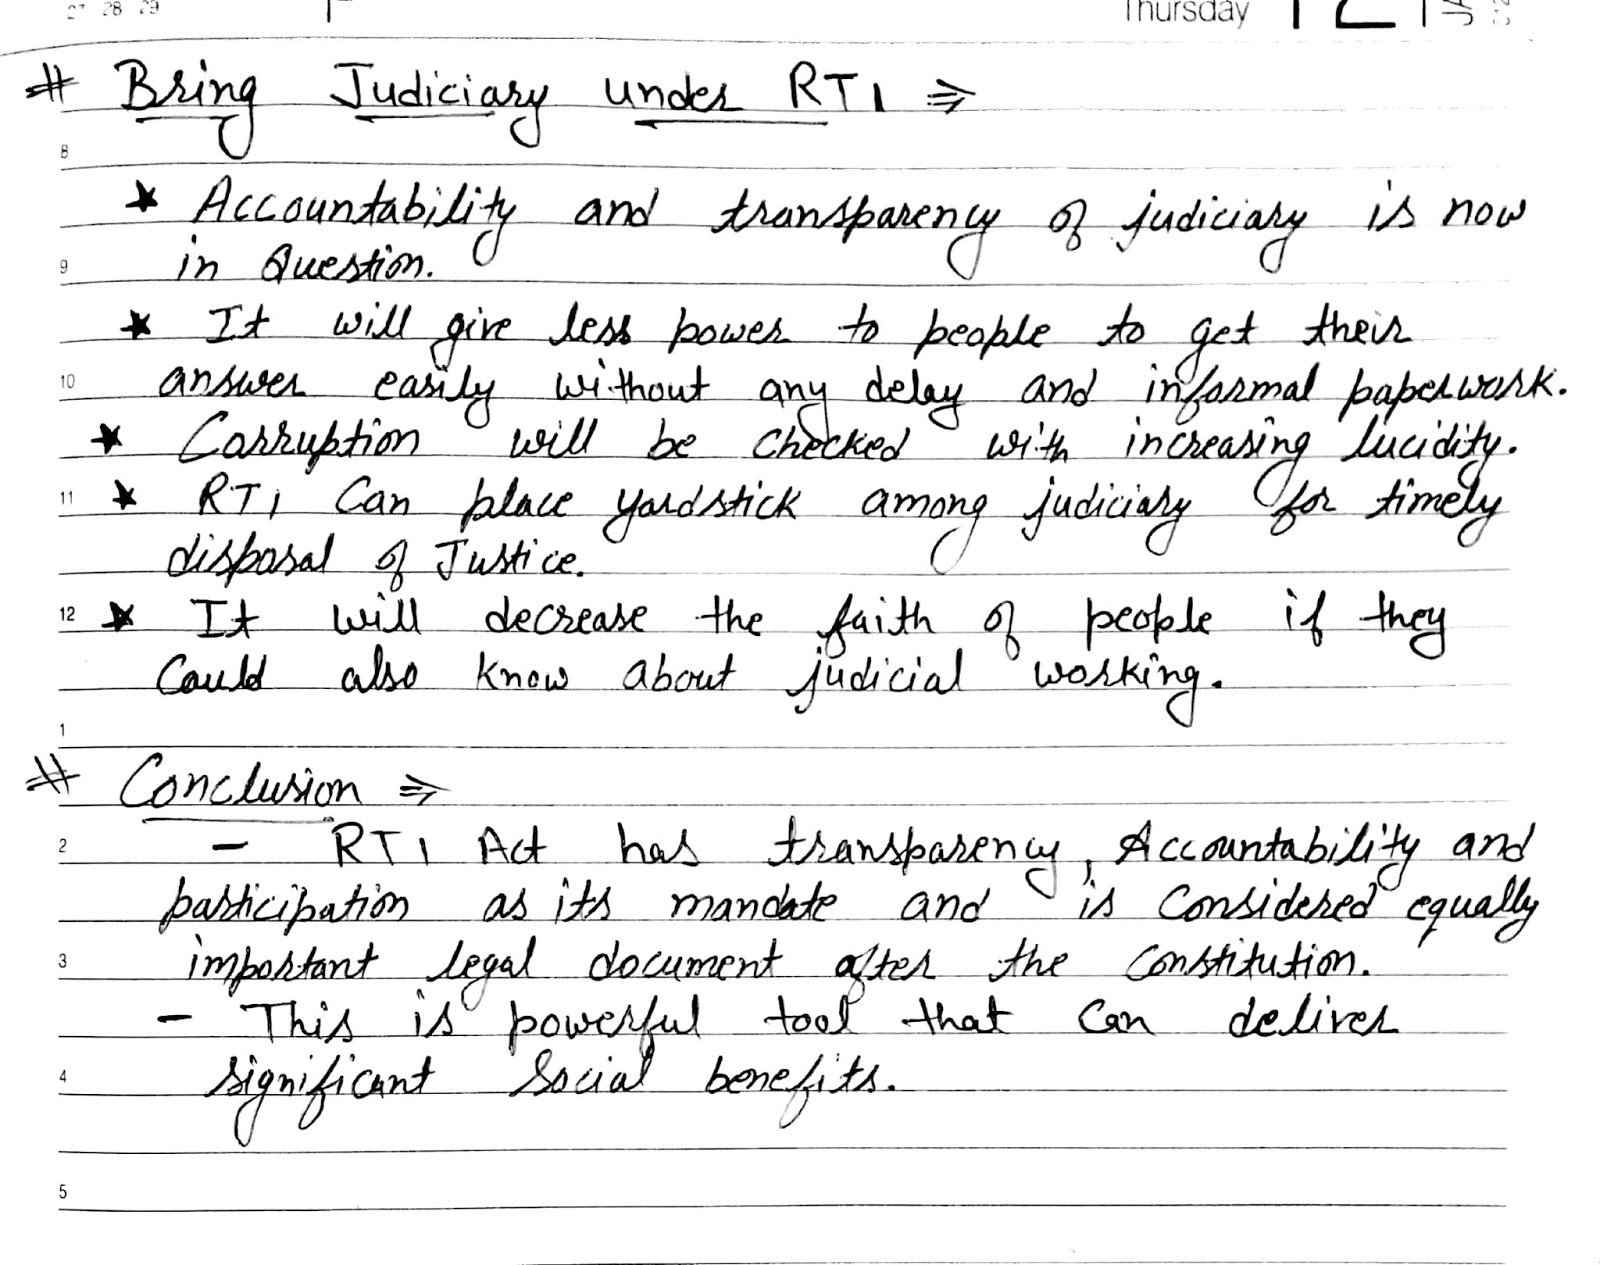 27 28 29
Thursday 12
# Bring Judiciary under RTI ⇒
8
★ Accountability and transparency of judiciary is now
9 in Question.
★ It will give less power to people to get their
10 answer easily without any delay and informal paperwork.
★ Corruption will be checked with increasing lucidity.
11 ★ RTI Can place yardstick among judiciary for timely
disposal of Justice.
12 ★ It will decrease the faith of people if they
Could also know about judicial working.
1
# Conclusion ⇒
2 – RTI Act has transparency, Accountability and
participation as its mandate and is Considered equally
3 important legal document after the Constitution.
– This is powerful tool that Can deliver
4 significant Social benefits.
5